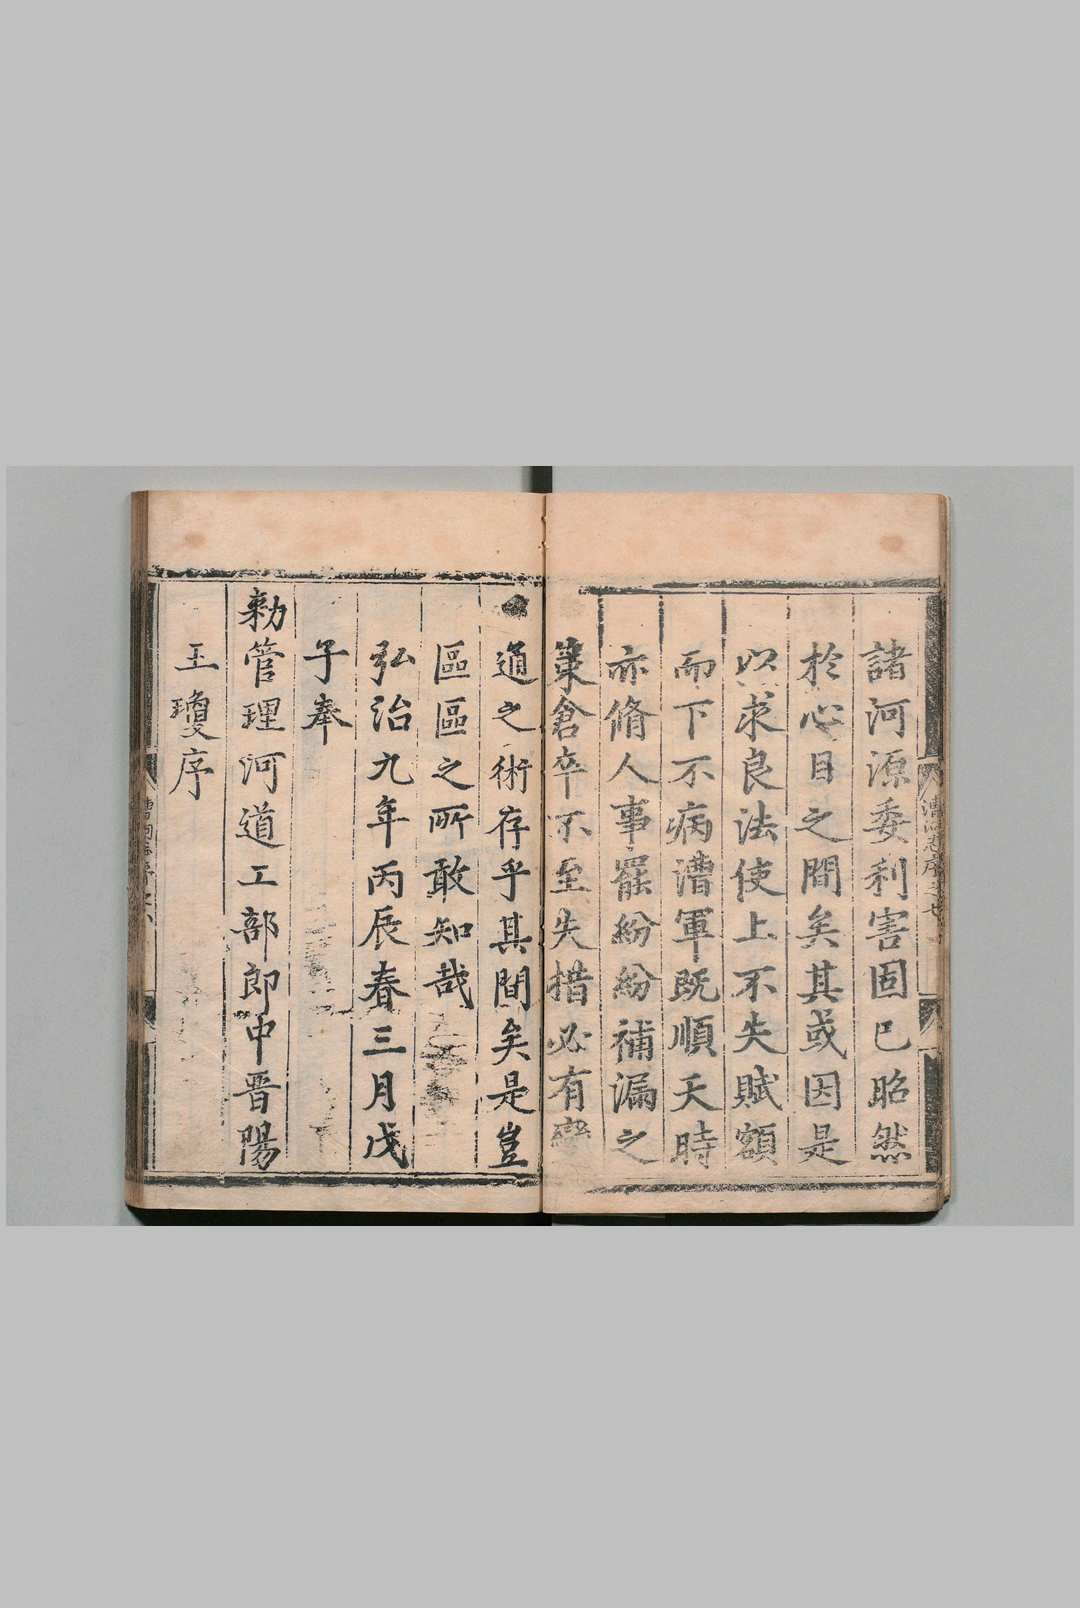 諸河源委利害固已昭然
於心目之間矣其或因是
以求良法使上不失賦額
而下不病漕軍既順天時
亦脩人事罷紛紛補漏之
策倉卒不至失措必有變
通之術存乎其間矣是豈
區區之所敢知哉
弘治九年丙辰春三月戊
子奉
勑管理河道工部郎中晋陽
王瓊序
漕河志序之七